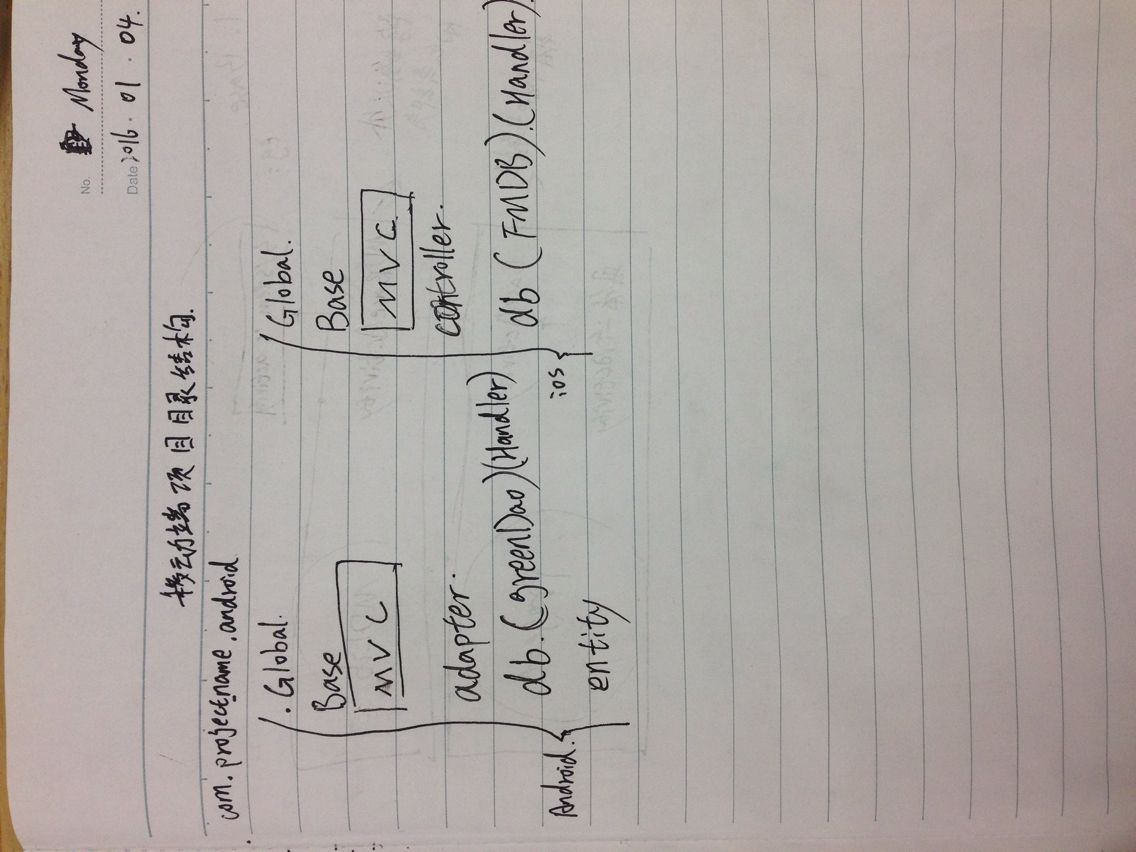 No. Monday
Date 2016.01.04.
移动端项目目录结构.
com.projectname.android
Android.
.Global.
Base
MVC
adapter.
db.(greenDao)(Handler)
entity
ios
Global.
Base
MVC.
controller.
db (FMDB).(Handler).